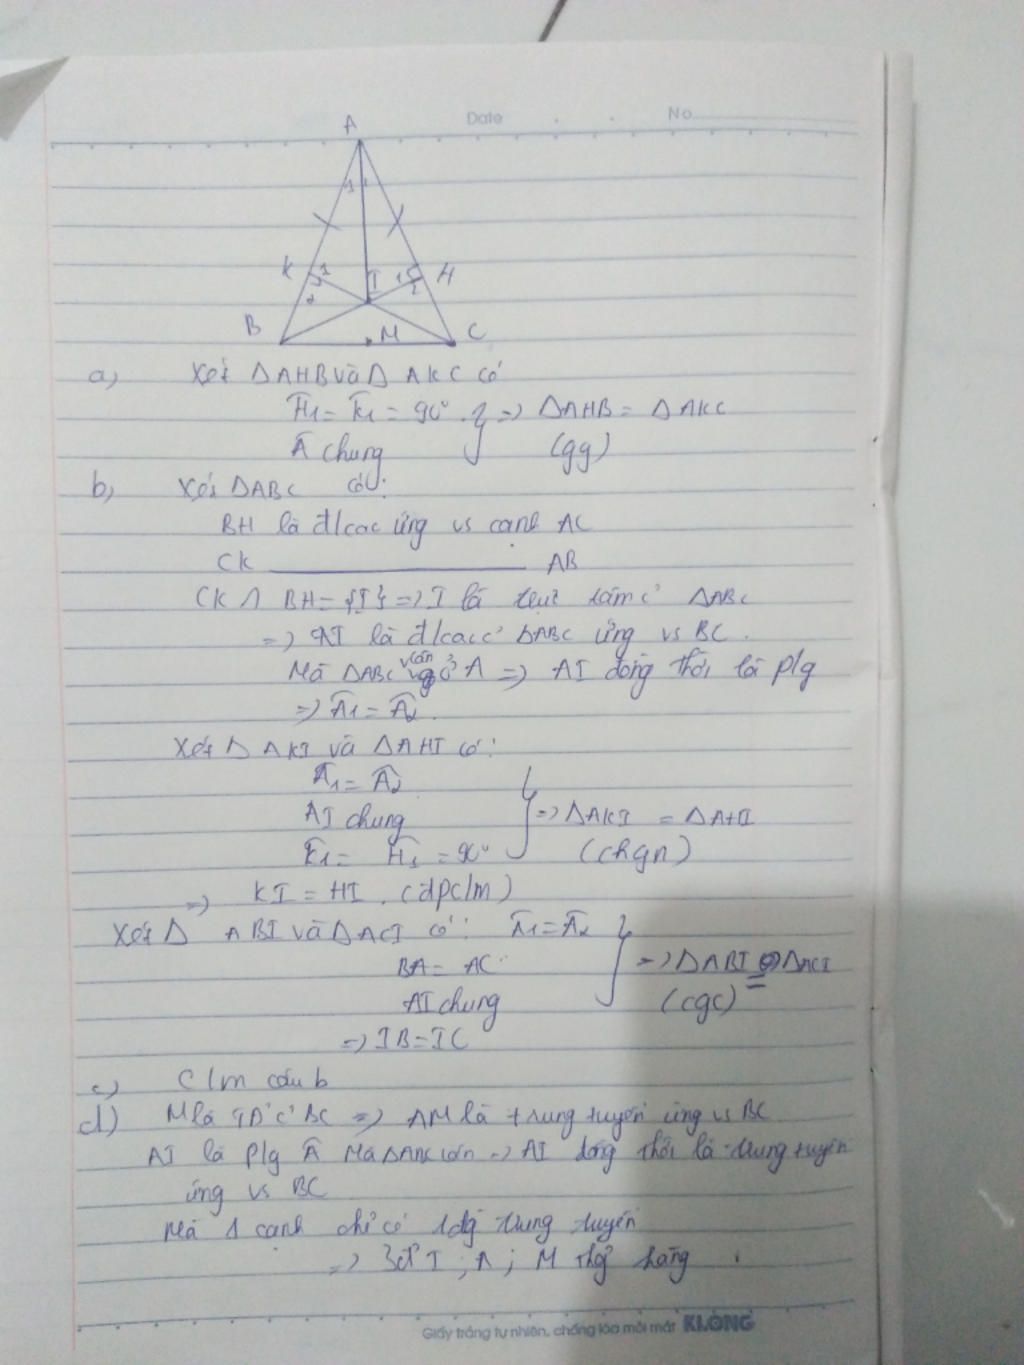 Date No
A
K 1 I 1 H
2 2
B M C
a) Xét ΔAHB và Δ AKC có
Ĥ1 = K̂1 = 90° } => ΔAHB = ΔAKC
Â chung (gg)
b) Xét ΔABC có:
BH là đ/cao ứng vs cạnh AC
CK ———————— AB
CK ∩ BH = {I} => I là trực tâm c' ΔABC
=> AI là đ/cao c' ΔABC ứng vs BC.
Mà ΔABC cân ở A => AI đồng thời là p/g
=> Â1 = Â2.
Xét Δ AKI và ΔAHI có:
Â1 = Â2
AI chung } => ΔAKI = ΔAHI
K̂1 = Ĥ1 = 90° (chgn)
=> KI = HI. (đpc/m)
Xét Δ ABI và ΔACI có: Â1 = Â2
BA = AC } => ΔABI = ΔACI
AI chung (cgc)
=> IB = IC
c) C/m câu b
d) M là TĐ' c' BC => AM là trung tuyến ứng vs BC
AI là p/g Â Mà ΔABC cân => AI đồng thời là trung tuyến
ứng vs BC
Mà 1 cạnh chỉ có 1 đg trung tuyến
=> 3 đ' I ; A ; M thg hàng.
Giấy trắng tự nhiên, chống lóa mỏi mắt KLONG